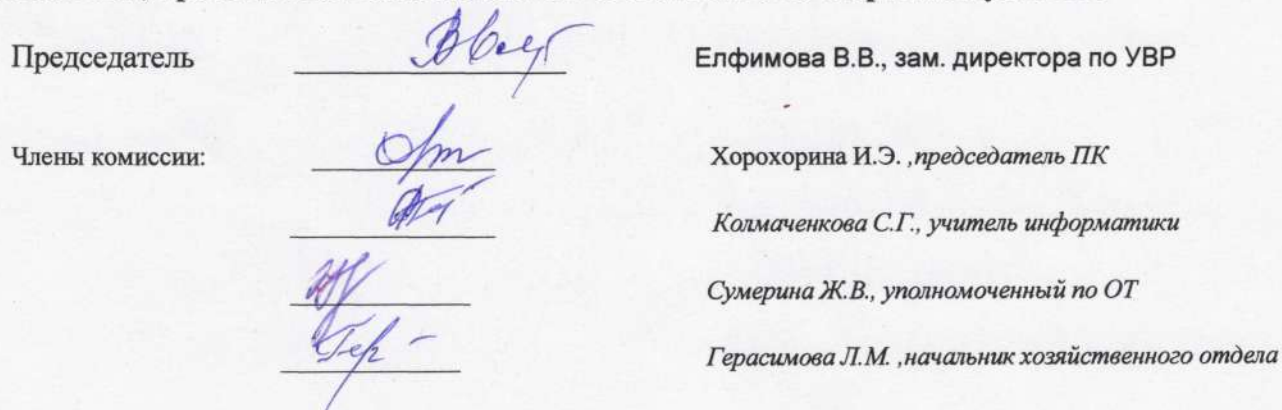 Председатель Елфимова В.В., зам. директора по УВР
Члены комиссии: Хорохорина И.Э. ,председатель ПК
Колмаченкова С.Г., учитель информатики
Сумерина Ж.В., уполномоченный по ОТ
Герасимова Л.М. ,начальник хозяйственного отдела